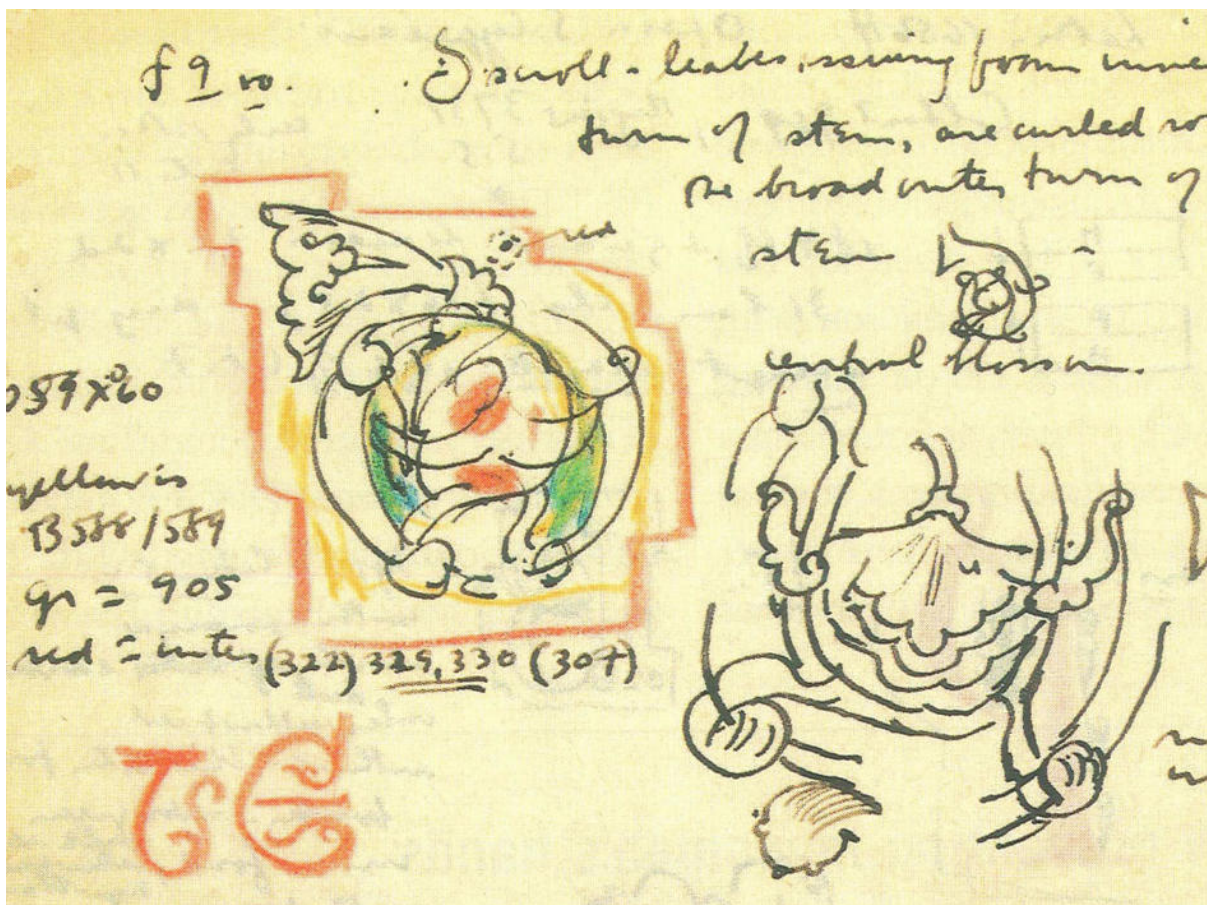 f 9
scroll - leaves, issuing from
turn of stem, are curled
broad outer turn of
red
stem
central blossom.
59 x 60
yellow is
B 588/589
gr = 905
red = (322) 329, 330 (307)